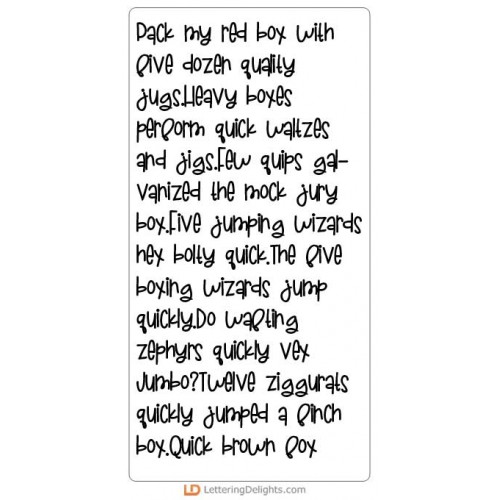 Pack my red box with
five dozen quality
jugs.Heavy boxes
perform quick waltzes
and jigs.Few quips gal-
vanized the mock jury
box.Five jumping wizards
hex bolty quick.The five
boxing wizards jump
quickly.Do wafting
zephyrs quickly vex
Jumbo?Twelve ziggurats
quickly jumped a finch
box.Quick brown fox
LD LetteringDelights.com